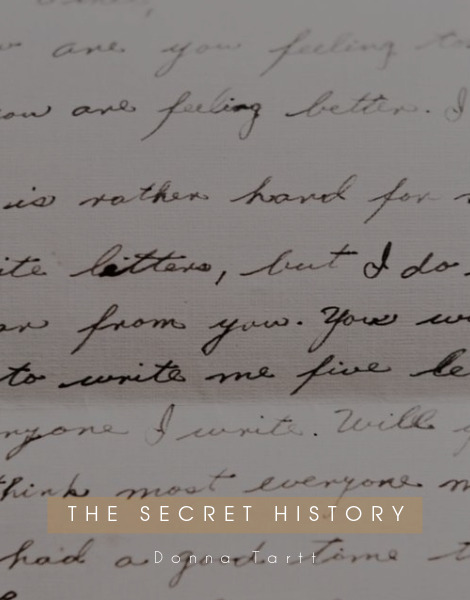 are you feeling
you are feeling better. I
is rather hard for
letters, but I do
from you. You
to write me five
I write. Will
think most everyone
THE SECRET HISTORY
had a good time
Donna Tartt